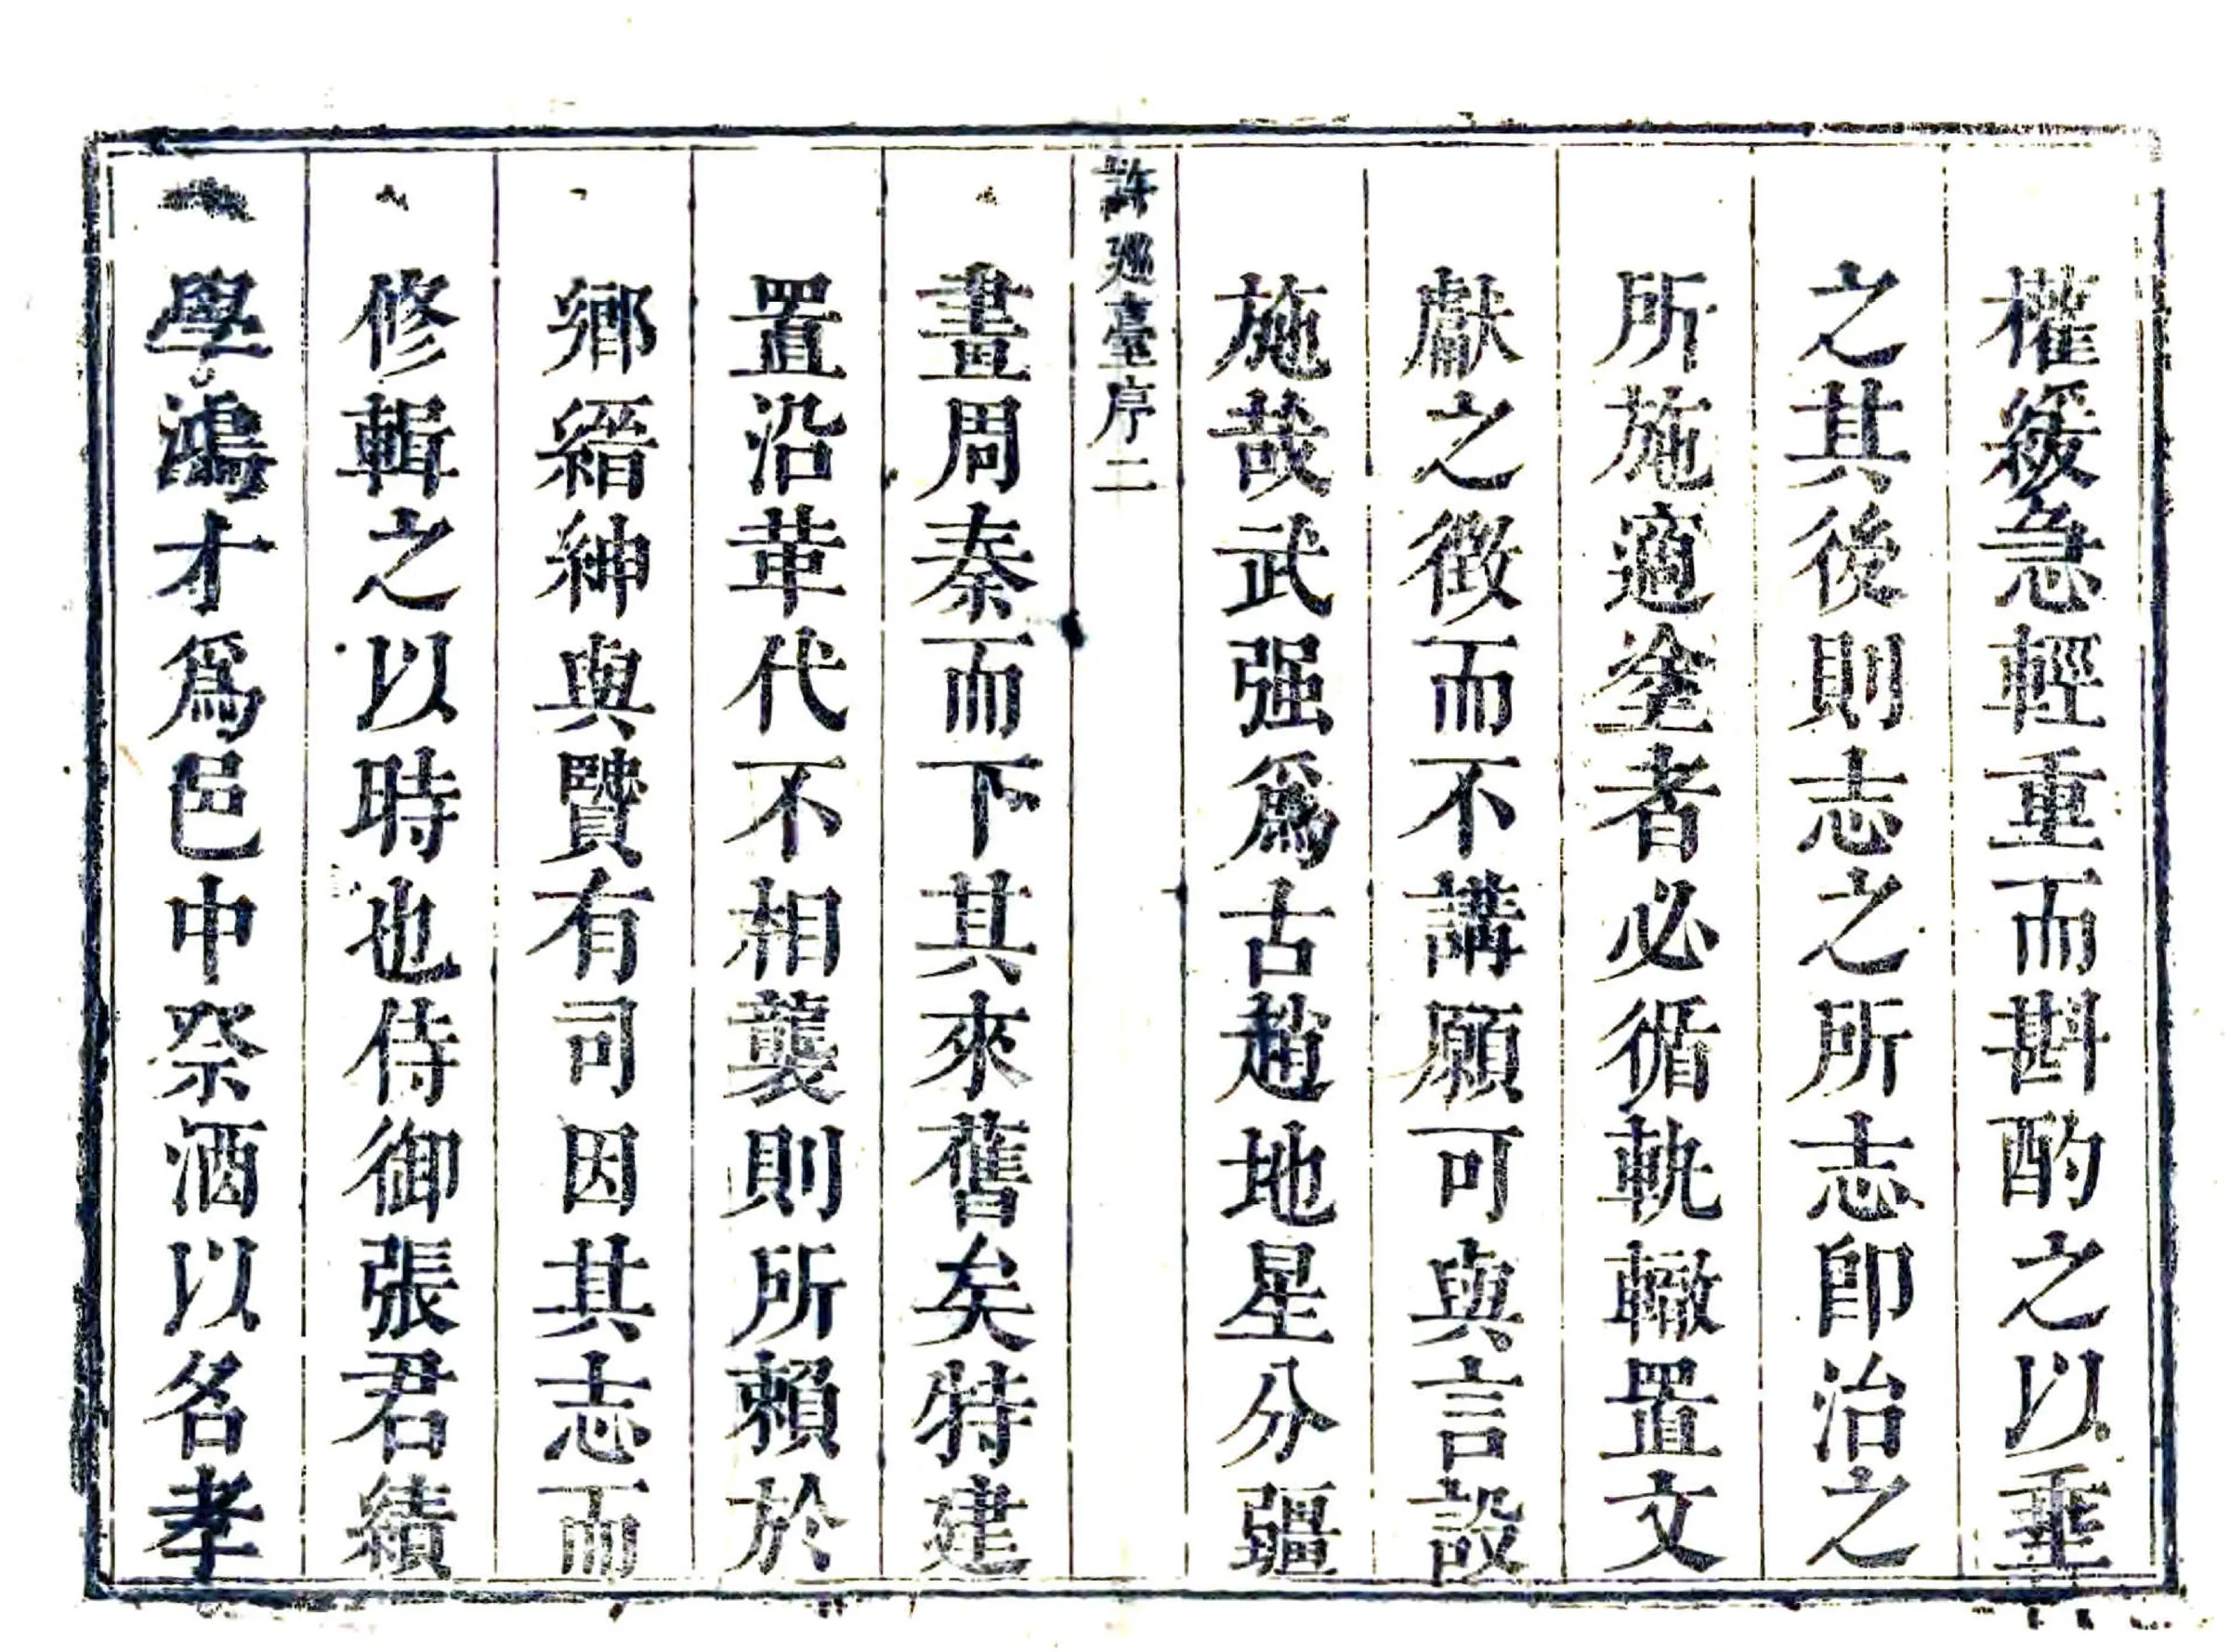 權緩急輕重而斟酌之以垂
之其後則志之所志卽治之
所施適塗者必循軌轍置文
獻之徵而不講願可與言設
施哉武强爲古趙地星分疆
許廵臺序二
畫周秦而下其來舊矣特建
置沿革代不相襲則所賴於
鄉縉紳與賢有司因其志而
修輯之以時也侍御張君績
學鴻才爲邑中祭酒以名孝